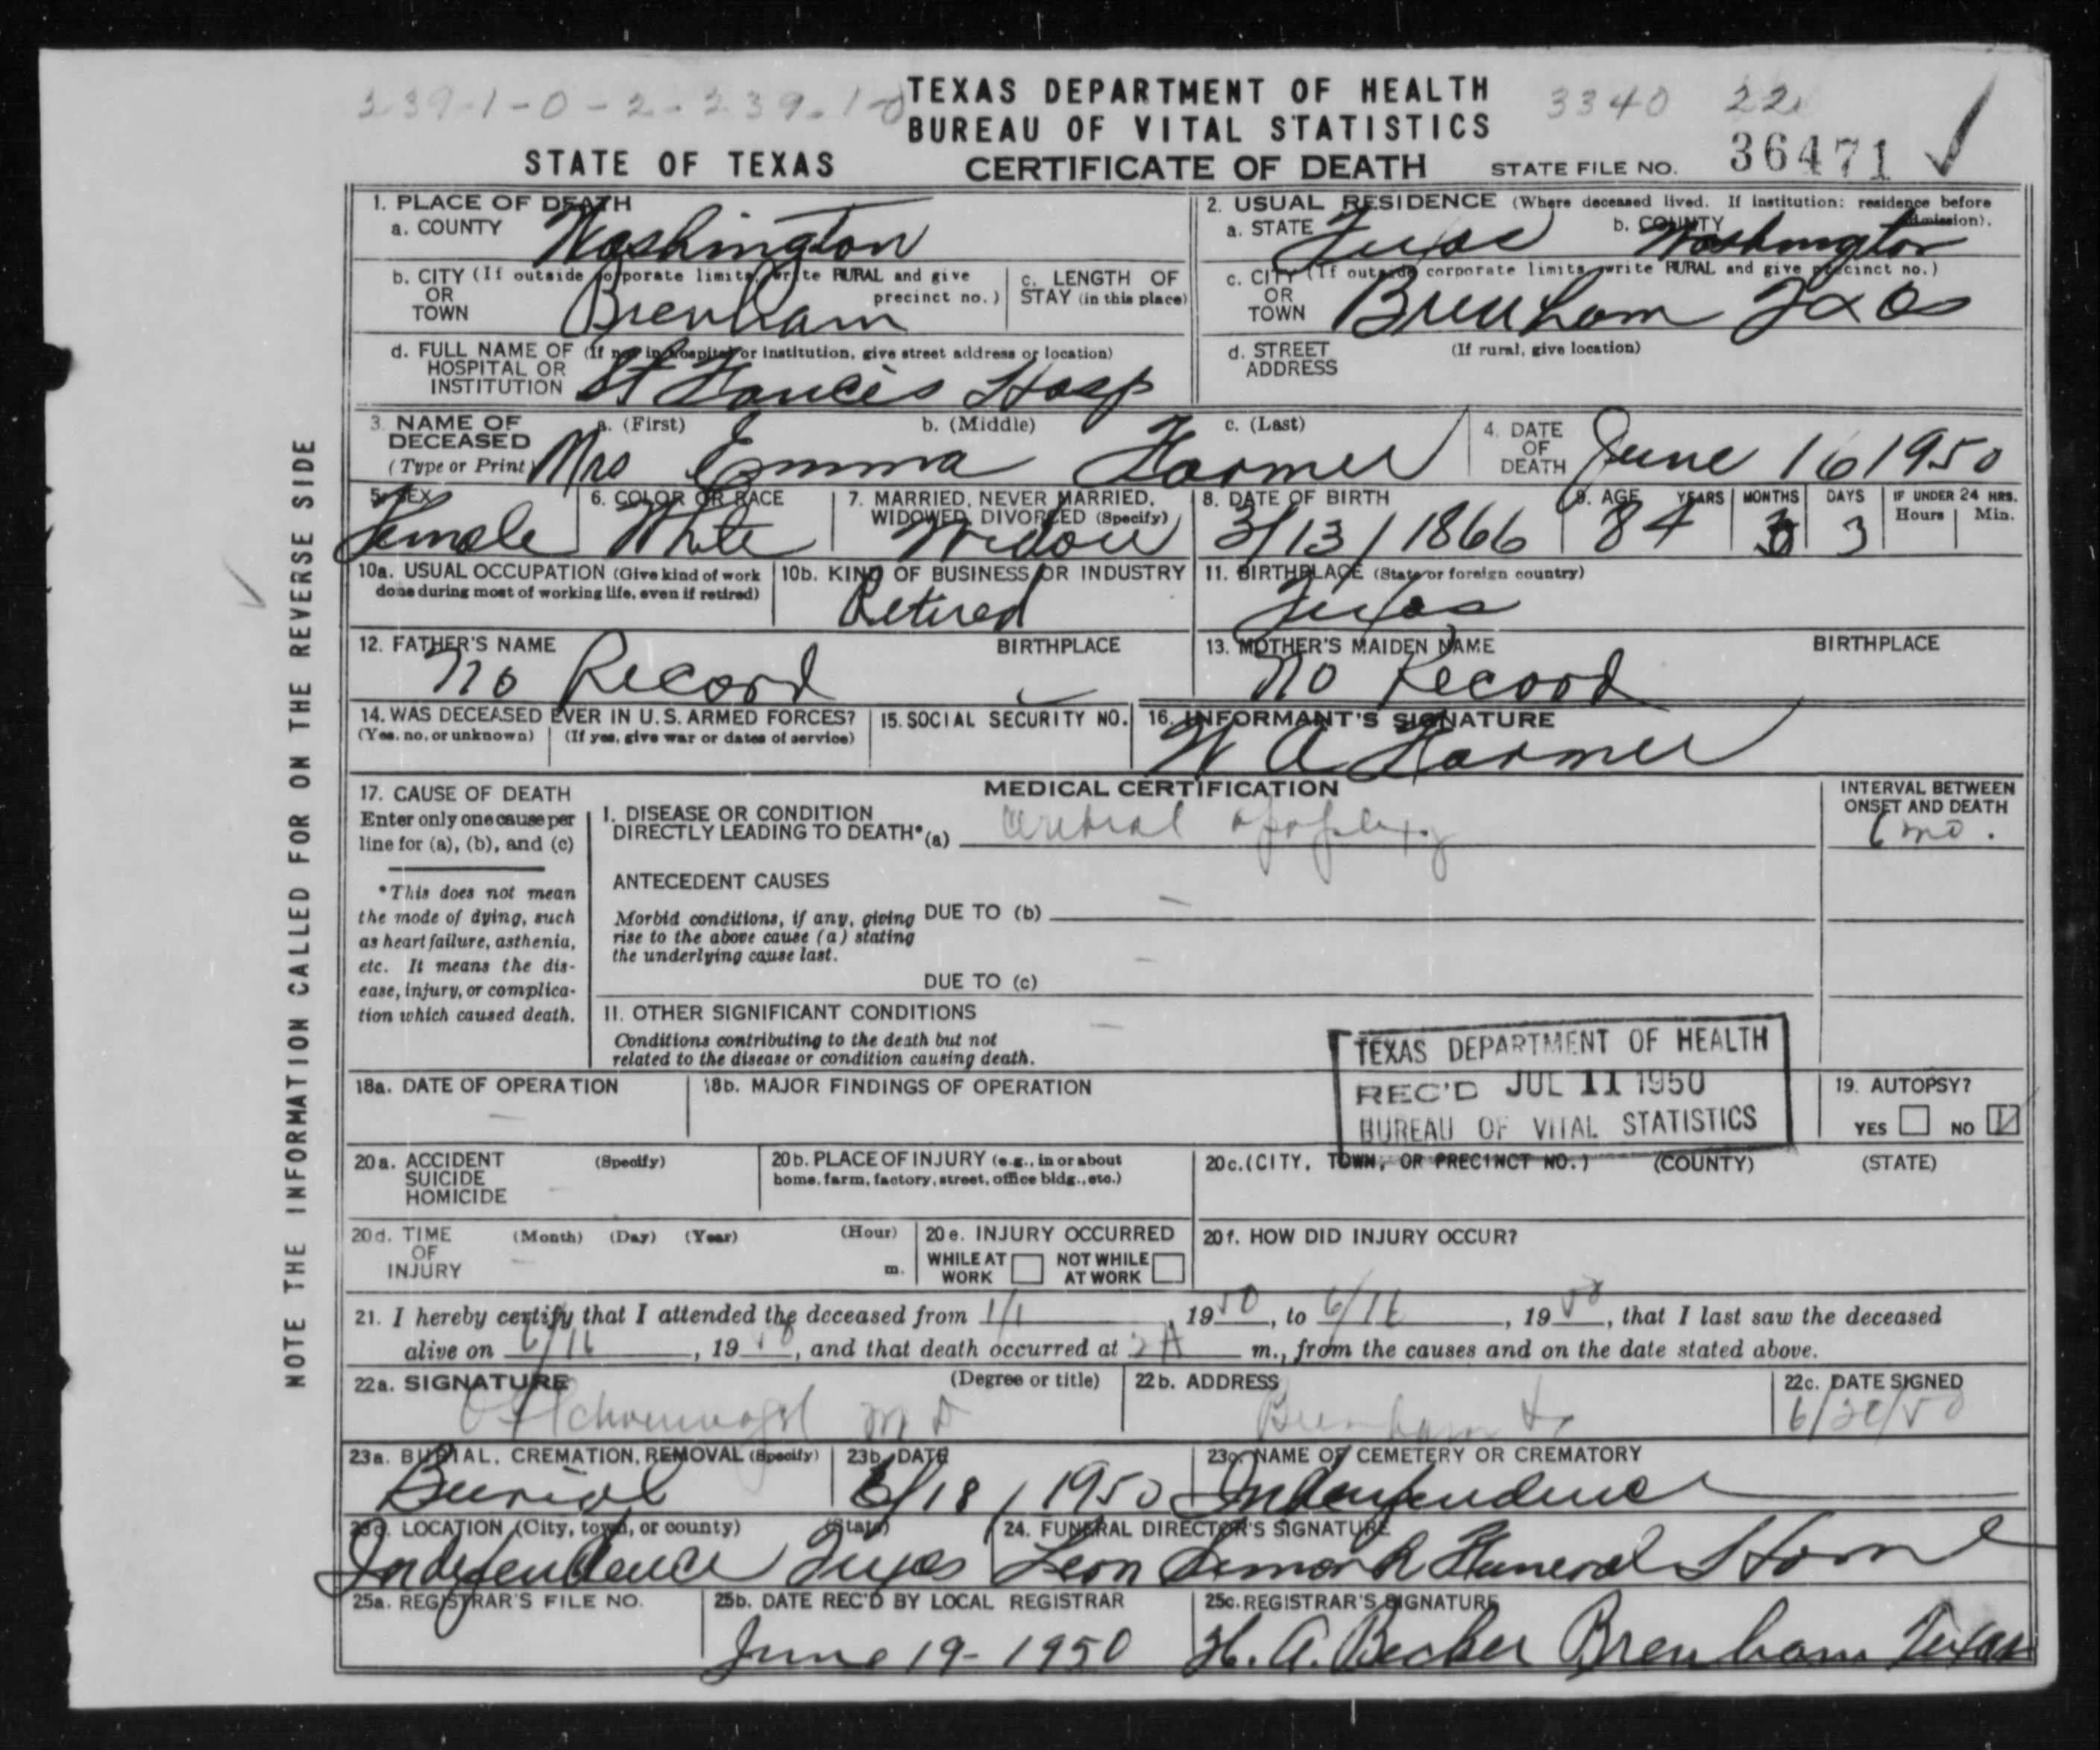 239-1-0-2-239.1-0
TEXAS DEPARTMENT OF HEALTH 3340 22
BUREAU OF VITAL STATISTICS
STATE OF TEXAS CERTIFICATE OF DEATH STATE FILE NO. 36471 ✓
1. PLACE OF DEATH
a. COUNTY Washington
2. USUAL RESIDENCE (Where deceased lived. If institution: residence before admission).
a. STATE Texas b. COUNTY Washington
b. CITY (If outside corporate limits, write RURAL and give precinct no.) OR TOWN Brenham
c. LENGTH OF STAY (in this place)
c. CITY (If outside corporate limits, write RURAL and give precinct no.) OR TOWN Brenham Texas
d. FULL NAME OF (If not in hospital or institution, give street address or location) HOSPITAL OR INSTITUTION St Francis Hosp
d. STREET ADDRESS (If rural, give location)
3. NAME OF DECEASED (Type or Print) a. (First) b. (Middle) c. (Last)
Mrs Emma Farmer
4. DATE OF DEATH June 16 1950
5. SEX Female
6. COLOR OR RACE White
7. MARRIED, NEVER MARRIED, WIDOWED, DIVORCED (Specify) Widow
8. DATE OF BIRTH 3/13/1866
9. AGE YEARS 84 MONTHS 3 DAYS 3 IF UNDER 24 HRS. Hours Min.
10a. USUAL OCCUPATION (Give kind of work done during most of working life, even if retired)
10b. KIND OF BUSINESS OR INDUSTRY Retired
11. BIRTHPLACE (State or foreign country) Texas
12. FATHER'S NAME BIRTHPLACE
No Record
13. MOTHER'S MAIDEN NAME BIRTHPLACE
No Record
14. WAS DECEASED EVER IN U.S. ARMED FORCES?
(Yes, no, or unknown) (If yes, give war or dates of service)
15. SOCIAL SECURITY NO.
16. INFORMANT'S SIGNATURE
W A Farmer
MEDICAL CERTIFICATION
17. CAUSE OF DEATH
Enter only one cause per line for (a), (b), and (c)
*This does not mean the mode of dying, such as heart failure, asthenia, etc. It means the disease, injury, or complication which caused death.
I. DISEASE OR CONDITION DIRECTLY LEADING TO DEATH* (a) Cerebral apoplexy
INTERVAL BETWEEN ONSET AND DEATH
6 mo.
ANTECEDENT CAUSES
Morbid conditions, if any, giving rise to the above cause (a) stating the underlying cause last.
DUE TO (b) —
DUE TO (c) —
II. OTHER SIGNIFICANT CONDITIONS —
Conditions contributing to the death but not related to the disease or condition causing death.
TEXAS DEPARTMENT OF HEALTH
REC'D JUL 11 1950
BUREAU OF VITAL STATISTICS
18a. DATE OF OPERATION —
18b. MAJOR FINDINGS OF OPERATION
19. AUTOPSY?
YES NO
20a. ACCIDENT SUICIDE HOMICIDE (Specify) —
20b. PLACE OF INJURY (e.g., in or about home, farm, factory, street, office bldg., etc.)
20c. (CITY, TOWN, OR PRECINCT NO.) (COUNTY) (STATE)
20d. TIME OF INJURY (Month) (Day) (Year) (Hour) m. —
20e. INJURY OCCURRED
WHILE AT WORK NOT WHILE AT WORK
20f. HOW DID INJURY OCCUR?
21. I hereby certify that I attended the deceased from 1/1, 1950, to 6/16, 1950, that I last saw the deceased
alive on 6/16, 1950, and that death occurred at 2 A m., from the causes and on the date stated above.
22a. SIGNATURE (Degree or title)
Schoenvogel M D
22b. ADDRESS
Brenham Tx
22c. DATE SIGNED
23a. BURIAL, CREMATION, REMOVAL (Specify)
Burial
23b. DATE
6/18/1950
23c. NAME OF CEMETERY OR CREMATORY
Independence
23d. LOCATION (City, town, or county) (State)
Independence Texas
24. FUNERAL DIRECTOR'S SIGNATURE
Leon Simank Funeral Home
25a. REGISTRAR'S FILE NO.
25b. DATE REC'D BY LOCAL REGISTRAR
June 19-1950
25c. REGISTRAR'S SIGNATURE
H. A. Becker Brenham Texas
NOTE THE INFORMATION CALLED FOR ON THE REVERSE SIDE